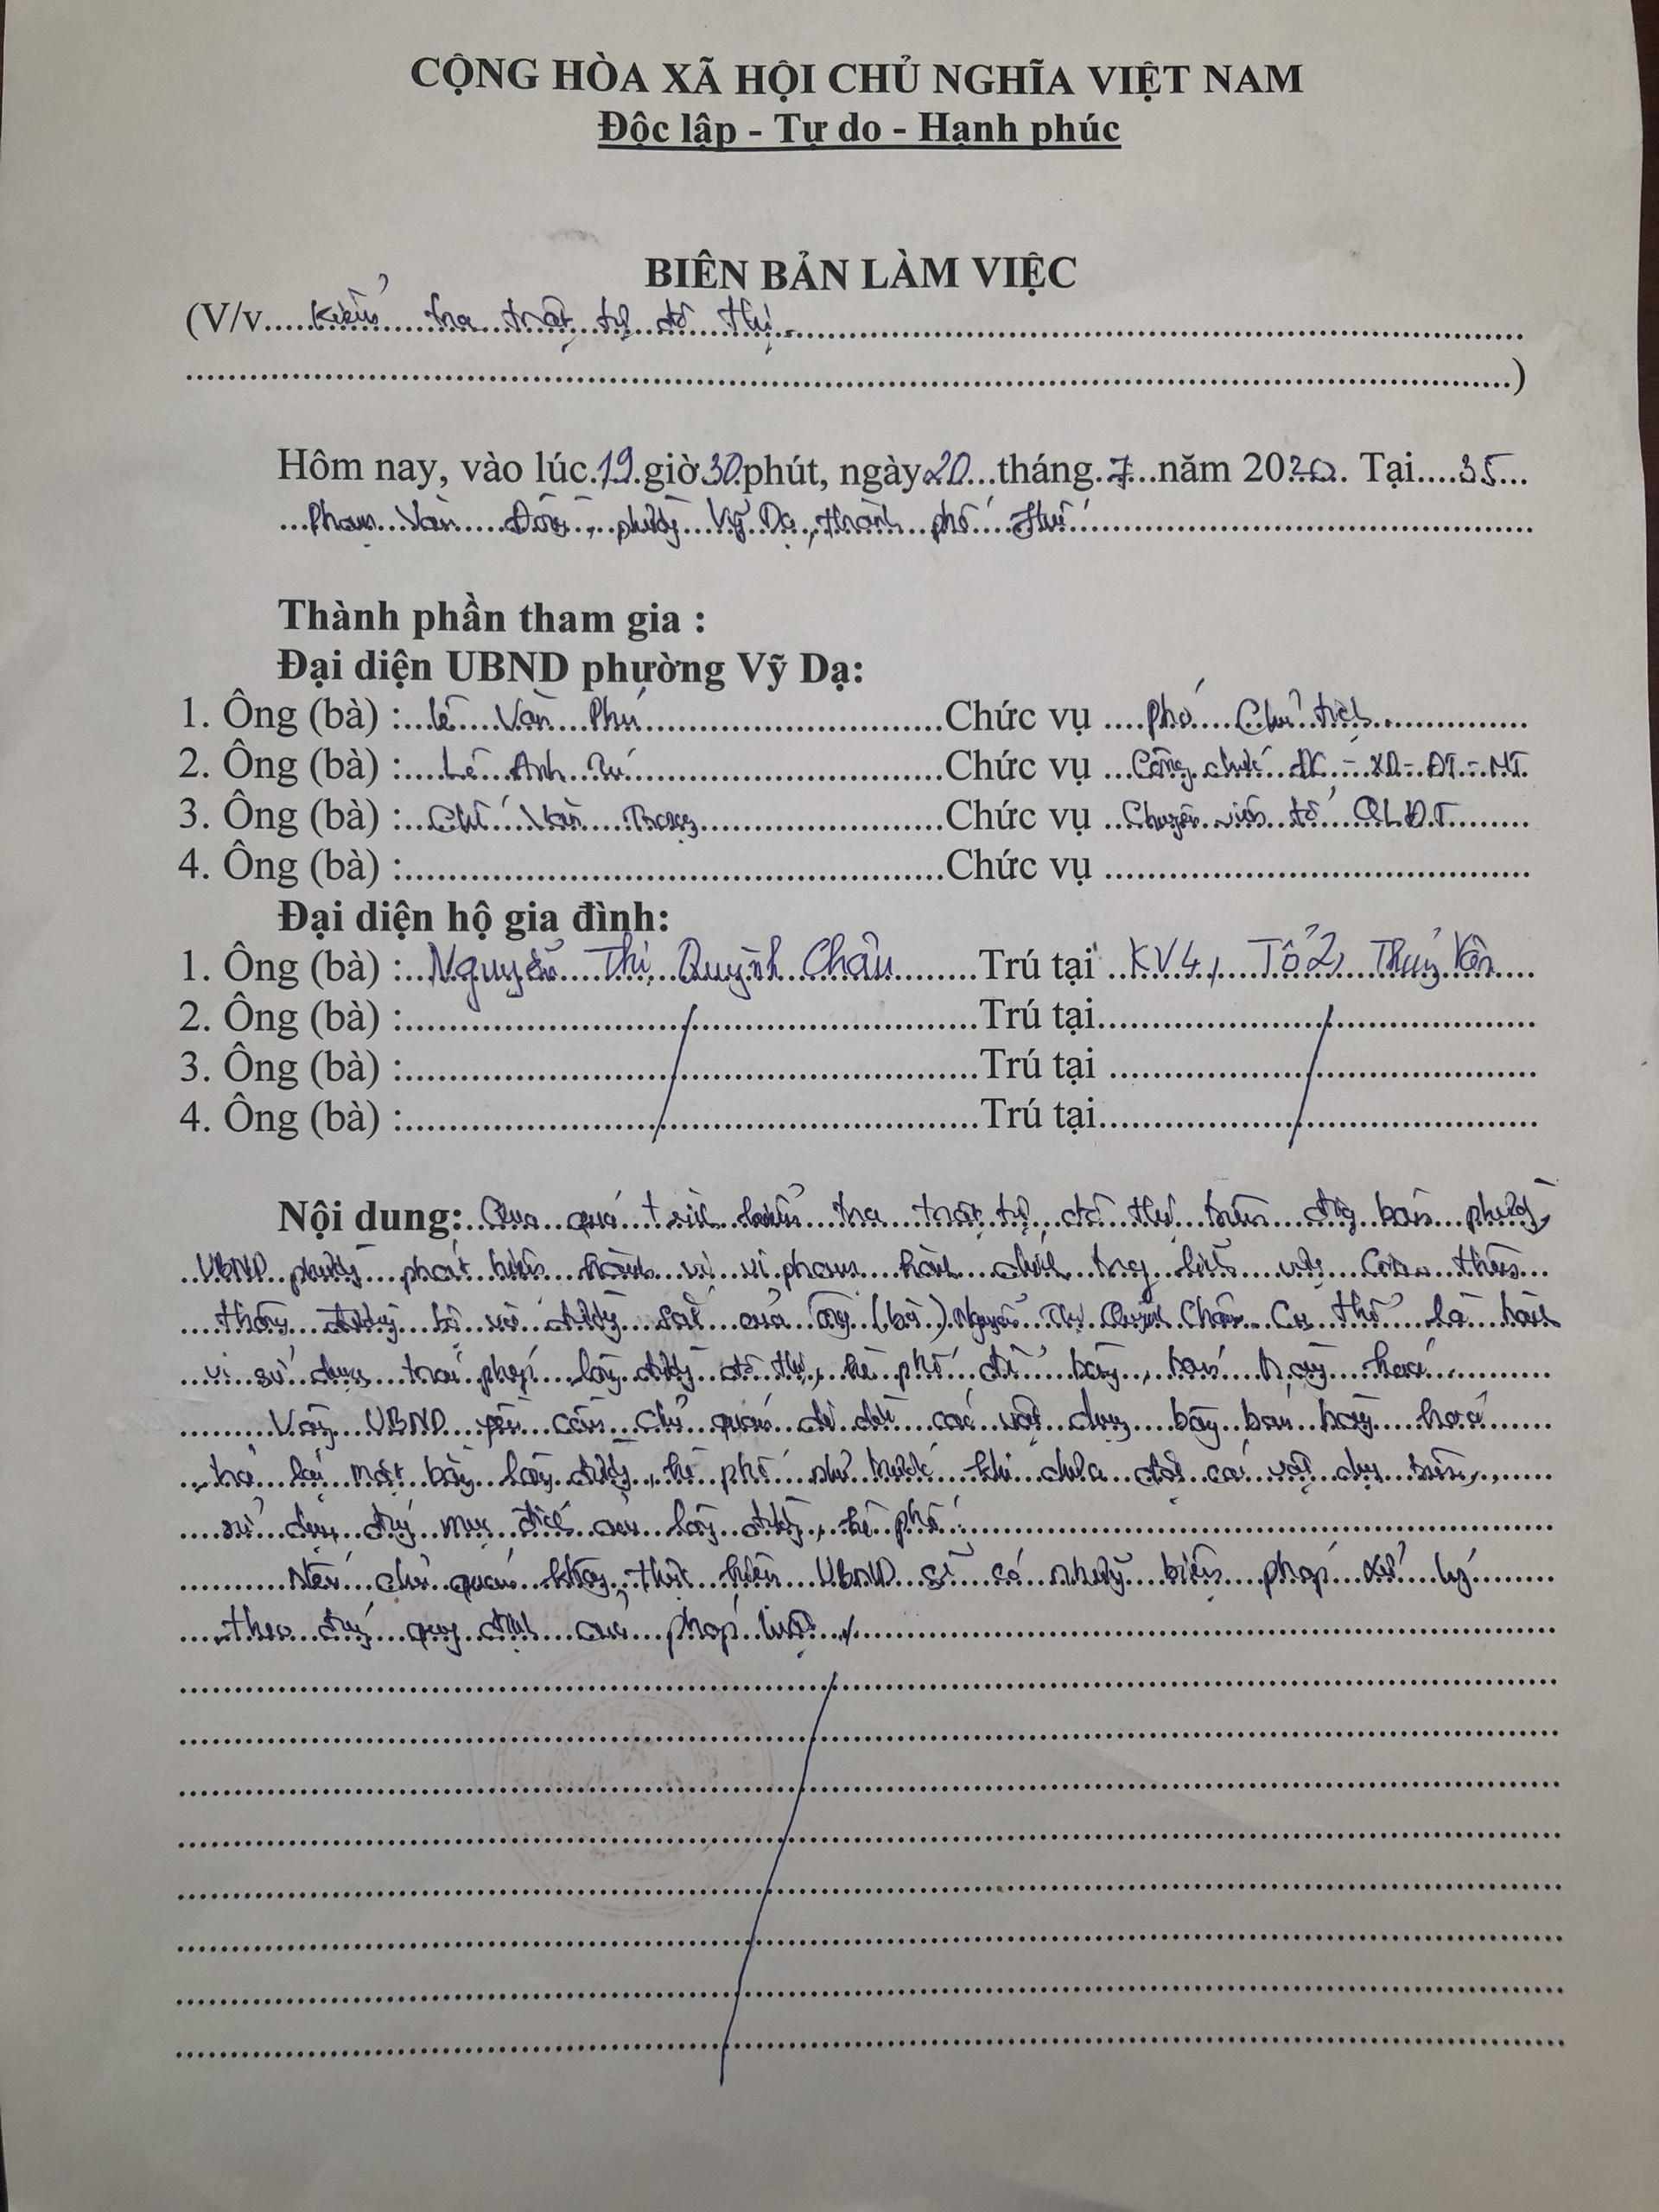 CỘNG HÒA XÃ HỘI CHỦ NGHĨA VIỆT NAM
Độc lập - Tự do - Hạnh phúc
BIÊN BẢN LÀM VIỆC
(V/v.....kiểm tra trật tự đô thị
)
Hôm nay, vào lúc.19.giờ30.phút, ngày20...tháng.7...năm 2020. Tại....35...
Phạm Văn Đồng, phường Vỹ Dạ, thành phố Huế
Thành phần tham gia :
Đại diện UBND phường Vỹ Dạ:
1. Ông (bà) :...Lê Văn Phú Chức vụ ....phó Chủ tịch
2. Ông (bà) :...Lê Anh Tú Chức vụ ...Công chức ĐC - XD - ĐT - MT
3. Ông (bà) : Văn Chức vụ ...Chuyên viên tổ QLĐT
4. Ông (bà) : Chức vụ
Đại diện hộ gia đình:
1. Ông (bà) :..Nguyễn Thị Quỳnh Châu Trú tại ..KV4, Tổ 2, Thủy Vân
2. Ông (bà) : Trú tại
3. Ông (bà) : Trú tại
4. Ông (bà) : Trú tại
Nội dung: Qua quá trình kiểm tra trật tự đô thị trên địa bàn phường
UBND phường phát hiện hành vi vi phạm hành chính trong lĩnh vực giao thông
đường bộ và đường sắt của ông (bà) Nguyễn Thị Quỳnh Châu. Cụ thể là hành
vi sử dụng trái phép lòng đường đô thị, hè phố để bày, bán hàng hoá.
Vậy UBND yêu cầu chủ quán di dời các vật dụng bày bán hàng hoá
trả lại mặt bằng lòng đường, hè phố như trước khi chưa đặt các vật dụng trên,
sử dụng đúng mục đích của lòng đường, hè phố.
Nếu chủ quán không thực hiện UBND sẽ có những biện pháp xử lý
theo đúng quy định của pháp luật ./.